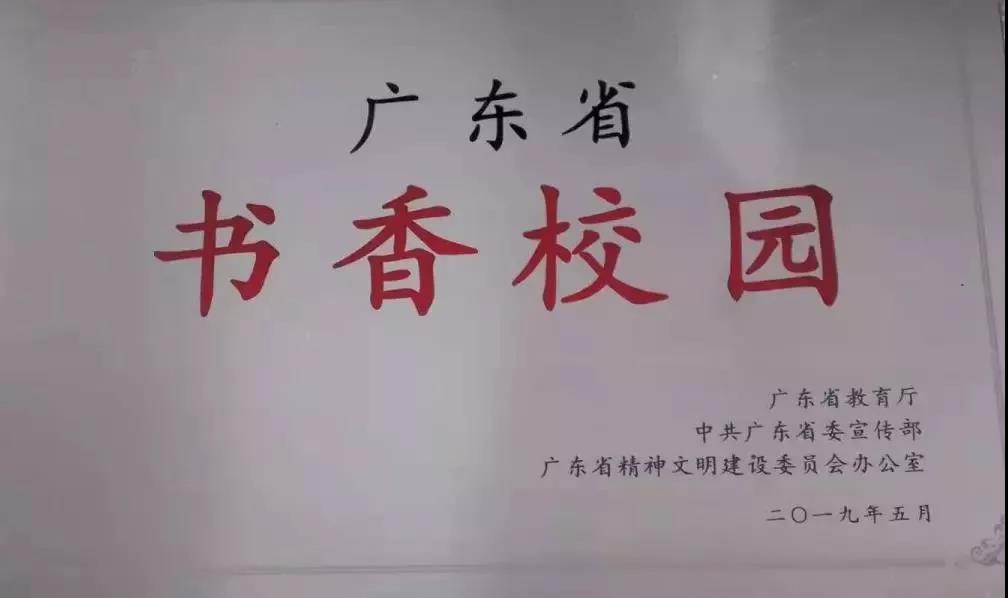 广东省
书香校园
广东省教育厅
中共广东省委宣传部
广东省精神文明建设委员会办公室
二〇一九年五月